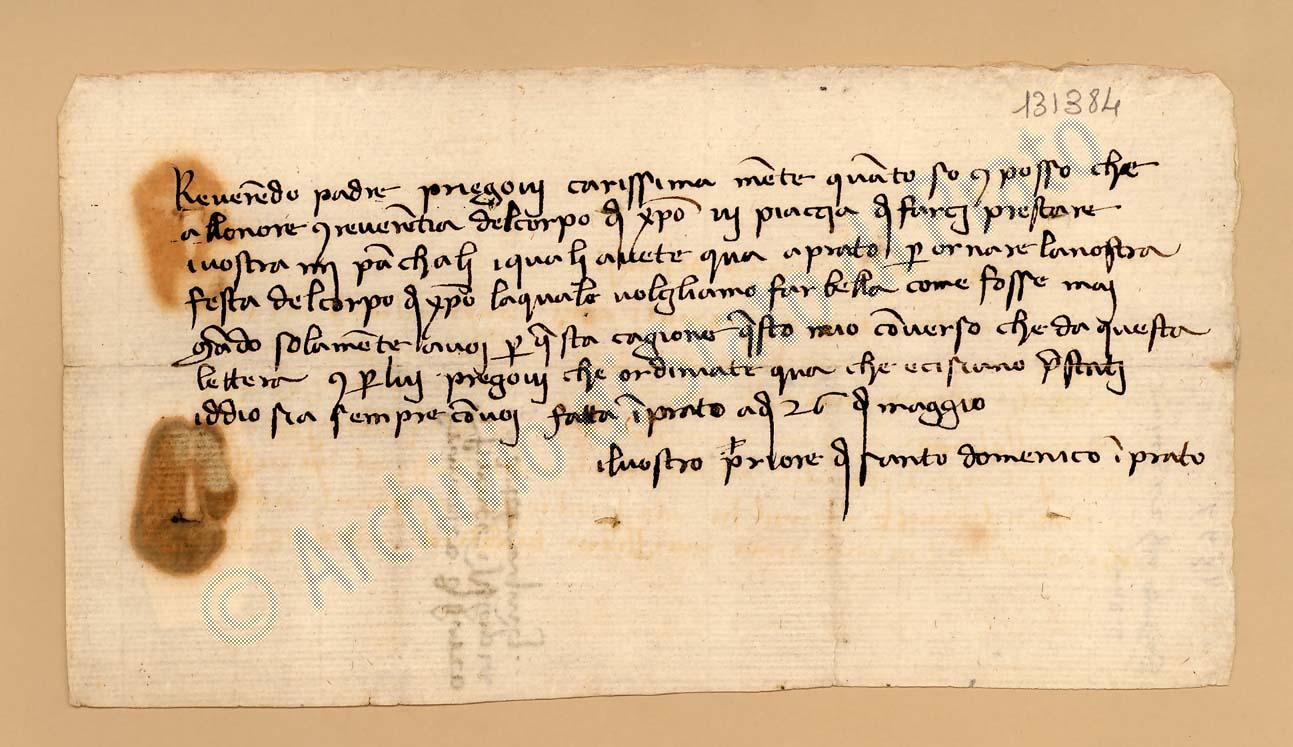 131384
Revere͞do padre priegovi carissima me͞te qua͞to so ⁊ posso che
a llonore ⁊ revere͞tia delcorpo d͞ xp͞o vi piaccia d͞ farci prestare
i vostra iiij pa͞chali i quali avete qua a prato p͞ ornare lanostra
festa delcorpo d͞ xp͞o laquale volgliamo far bella come fosse mai
ma͞do solame͞te avoi p͞ q͞sta cagione q͞sto mio co͞verso che da questa
lettera ⁊ p͞ lui pregovi che ordiniate qua che ecisiano p͞stati
iddio sia sempre co͞voi fatta i͞ prato ad͞ 26 d͞ maggio
ilvostro priore d͞ santo domenico i͞ prato
© Archivio di Stato di Prato